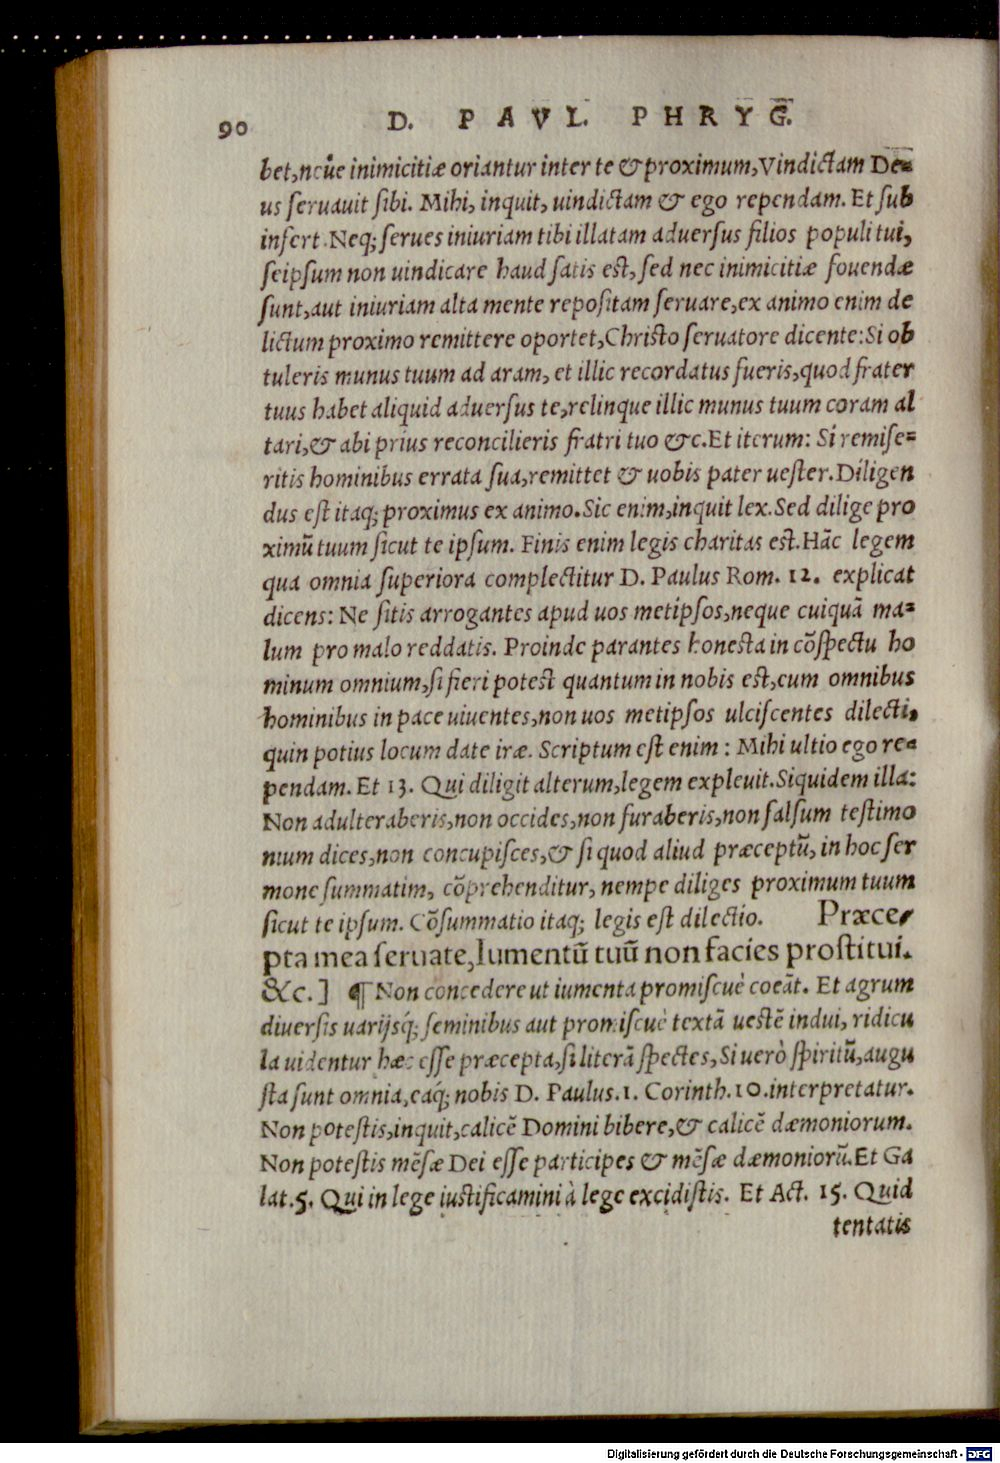 90 D. PAVL. PHRYG̅.
bet, neúe inimicitiæ oriantur inter te & proximum, Vindictam De=
us ſeruauit ſibi. Mihi, inquit, uindictam & ego rependam. Et ſub
infert. Neq; ſerues iniuriam tibi illatam aduerſus filios populi tui,
ſeipſum non uindicare haud ſatis eſt, ſed nec inimicitiæ fouendæ
ſunt, aut iniuriam alta mente repoſitam ſeruare, ex animo enim de
lictum proximo remittere oportet, Chriſto ſeruatore dicente: Si ob
tuleris munus tuum ad aram, et illic recordatus fueris, quod frater
tuus habet aliquid aduerſus te, relinque illic munus tuum coram al
tari, & abi prius reconcilieris fratri tuo &c. Et iterum: Si remiſe=
ritis hominibus errata ſua, remittet & uobis pater ueſter. Diligen
dus eſt itaq; proximus ex animo. Sic enim, inquit lex. Sed dilige pro
ximũ tuum ſicut te ipſum. Finis enim legis charitas eſt. Hãc legem
qua omnia ſuperiora complectitur D. Paulus Rom. 12. explicat
dicens: Ne ſitis arrogantes apud uos metipſos, neque cuiquã ma=
lum pro malo reddatis. Proinde parantes honeſta in cõſpectu ho
minum omnium, ſi fieri poteſt quantum in nobis eſt, cum omnibus
hominibus in pace uiuentes, non uos metipſos ulciſcentes dilecti,
quin potius locum date iræ. Scriptum eſt enim : Mihi ultio ego re=
pendam. Et 13. Qui diligit alterum, legem expleuit. Siquidem illa:
Non adulteraberis, non occides, non furaberis, non falſum teſtimo
nium dices, non concupiſces, & ſi quod aliud præceptũ, in hoc ſer
mone ſummatim, cõprehenditur, nempe diliges proximum tuum
ſicut te ipſum. Cõſummatio itaq; legis eſt dilectio. Præce=
pta mea ſeruate, Iumentũ tuũ non facies proſtitui.
&c.] ¶ Non concedere ut iumenta promiſcuè coeãt. Et agrum
diuerſis uarijsq́; ſeminibus aut promiſcuè textã ueſtẽ indui, ridicu
la uidentur hæc eſſe præcepta, ſi literã ſpectes, Si uerò ſpiritũ, augu
ſta ſunt omnia, eaq́; nobis D. Paulus. 1. Corinth. 10. interpretatur.
Non poteſtis, inquit, calicẽ Domini bibere, & calicẽ dæmoniorum.
Non poteſtis mẽſæ Dei eſſe participes & mẽſæ dæmoniorũ. Et Ga
lat. 5. Qui in lege iuſtificamini à lege excidiſtis. Et Act. 15. Quid
tentatis
Digitalisierung gefördert durch die Deutsche Forschungsgemeinschaft - DFG